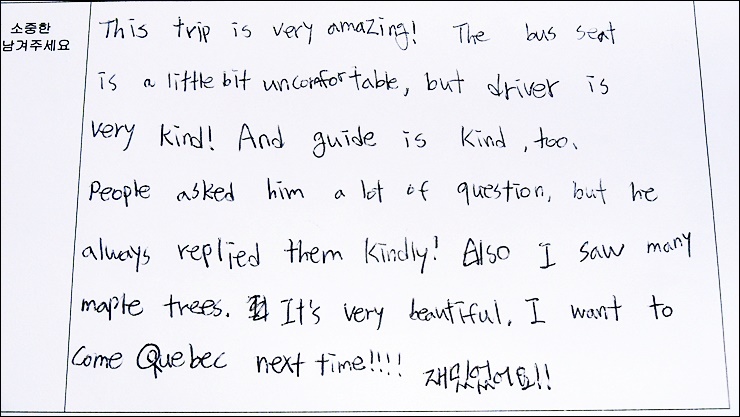 소중한
남겨주세요
This trip is very amazing! The bus seat
is a little bit uncomfortable, but driver is
very kind! And guide is kind, too.
People asked him a lot of question, but he
always replied them kindly! Also I saw many
maple trees. It's very beautiful. I want to
Come Quebec next time!!!! 재밌었어요!!